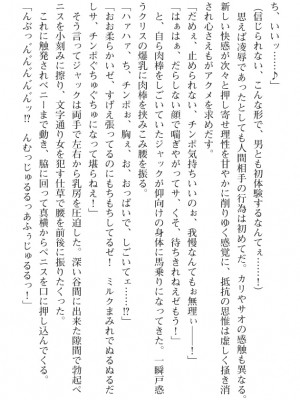 ち、いいッ……♪」
(信じられない、こんな形で、男とも初体験するなんてぇ……!)
思えば凌辱であったとしても人間相手の行為は初めてだ。カリやサオの感触も異なる。
新しい快感が次々と押し寄せ理性を甘やかに削りゆく感覚に、抵抗の思惟は虚しく掻き消
され心さえもがアクメを求めだす。
「だめぇ、止められない、チンポ気持ちいいのぉ、我慢なんてもお無理ぃ――!」
「はぁはぁ、だらしない顔で喘ぎやがってや、くそ、待ちきれねえぜもう!」
と、自ら肉棒をしごいていたジャックが仰向けの身体に馬乗りになってきた。一瞬戸惑
うクリスの爆乳に肉棒を挟みこみ腰を振る。
「ハァハァ、ち、チンポぉ、胸ぇ、お、おっぱいで、しごいてェ……!」
「おお柔らかいぜ、すげえ張ってるのにもちもちしてるぜ! ミルクまみれでぬるぬるだ
しサ、チンポぐちゅぐちゅになって堪らねえ!」
そう言ってジャックは両手で左右から乳房を圧迫した。深い谷間に出来た隙間で勃起ペ
ニスを小刻みに擦り、文字通り女を犯す仕草で腰を前後に振りたくった。
これに触発されペニーまで動き、脇に回って真横からペニスを口に押し込んでくる。
「んぶっっんんんんッ!? んむっじゅるるっあふっじゅるるっ!